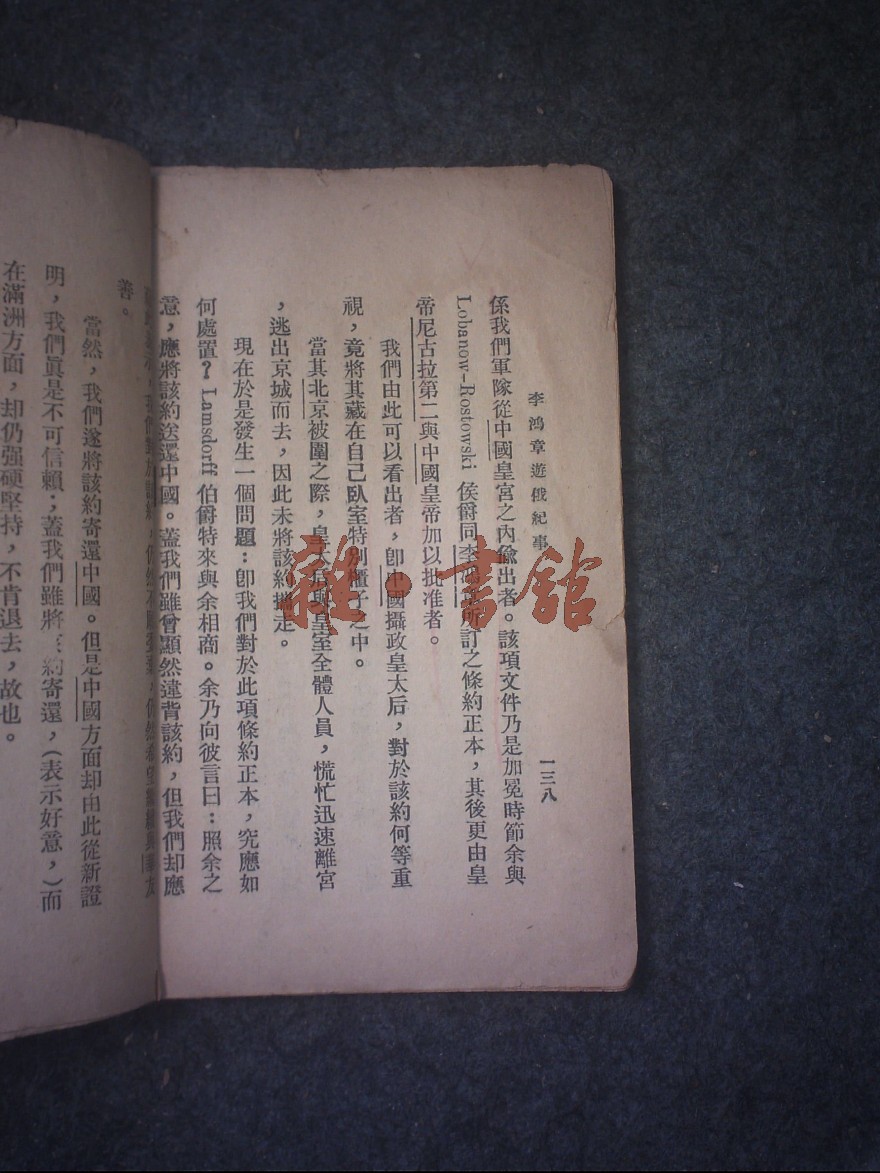 李鴻章遊俄紀事
一三八
係我們軍隊從中國皇宮之內偸出者。該項文件乃是加冕時節余與
Lobanow-Rostowski 侯爵同李鴻章所訂之條約正本，其後更由皇
帝尼古拉第二與中國皇帝加以批准者。
我們由此可以看出者，卽中國攝政皇太后，對於該約何等重
視，竟將其藏在自己臥室特別櫃子之中。
當其北京被圍之際，皇太后與皇室全體人員，慌忙迅速離宮
，逃出京城而去，因此未將該約攜走。
現在於是發生一個問題：卽我們對於此項條約正本，究應如
何處置？Lamsdorff 伯爵特來與余相商。余乃向彼言曰：照余之
意，應將該約送還中國。蓋我們雖曾顯然違背該約，但我們却應
善。
當然，我們遂將該約寄還中國。但是中國方面却由此從新證
明，我們眞是不可信賴；蓋我們雖將 約寄還，（表示好意，）而
在滿洲方面，却仍强硬堅持，不肯退去，故也。
雜·書館